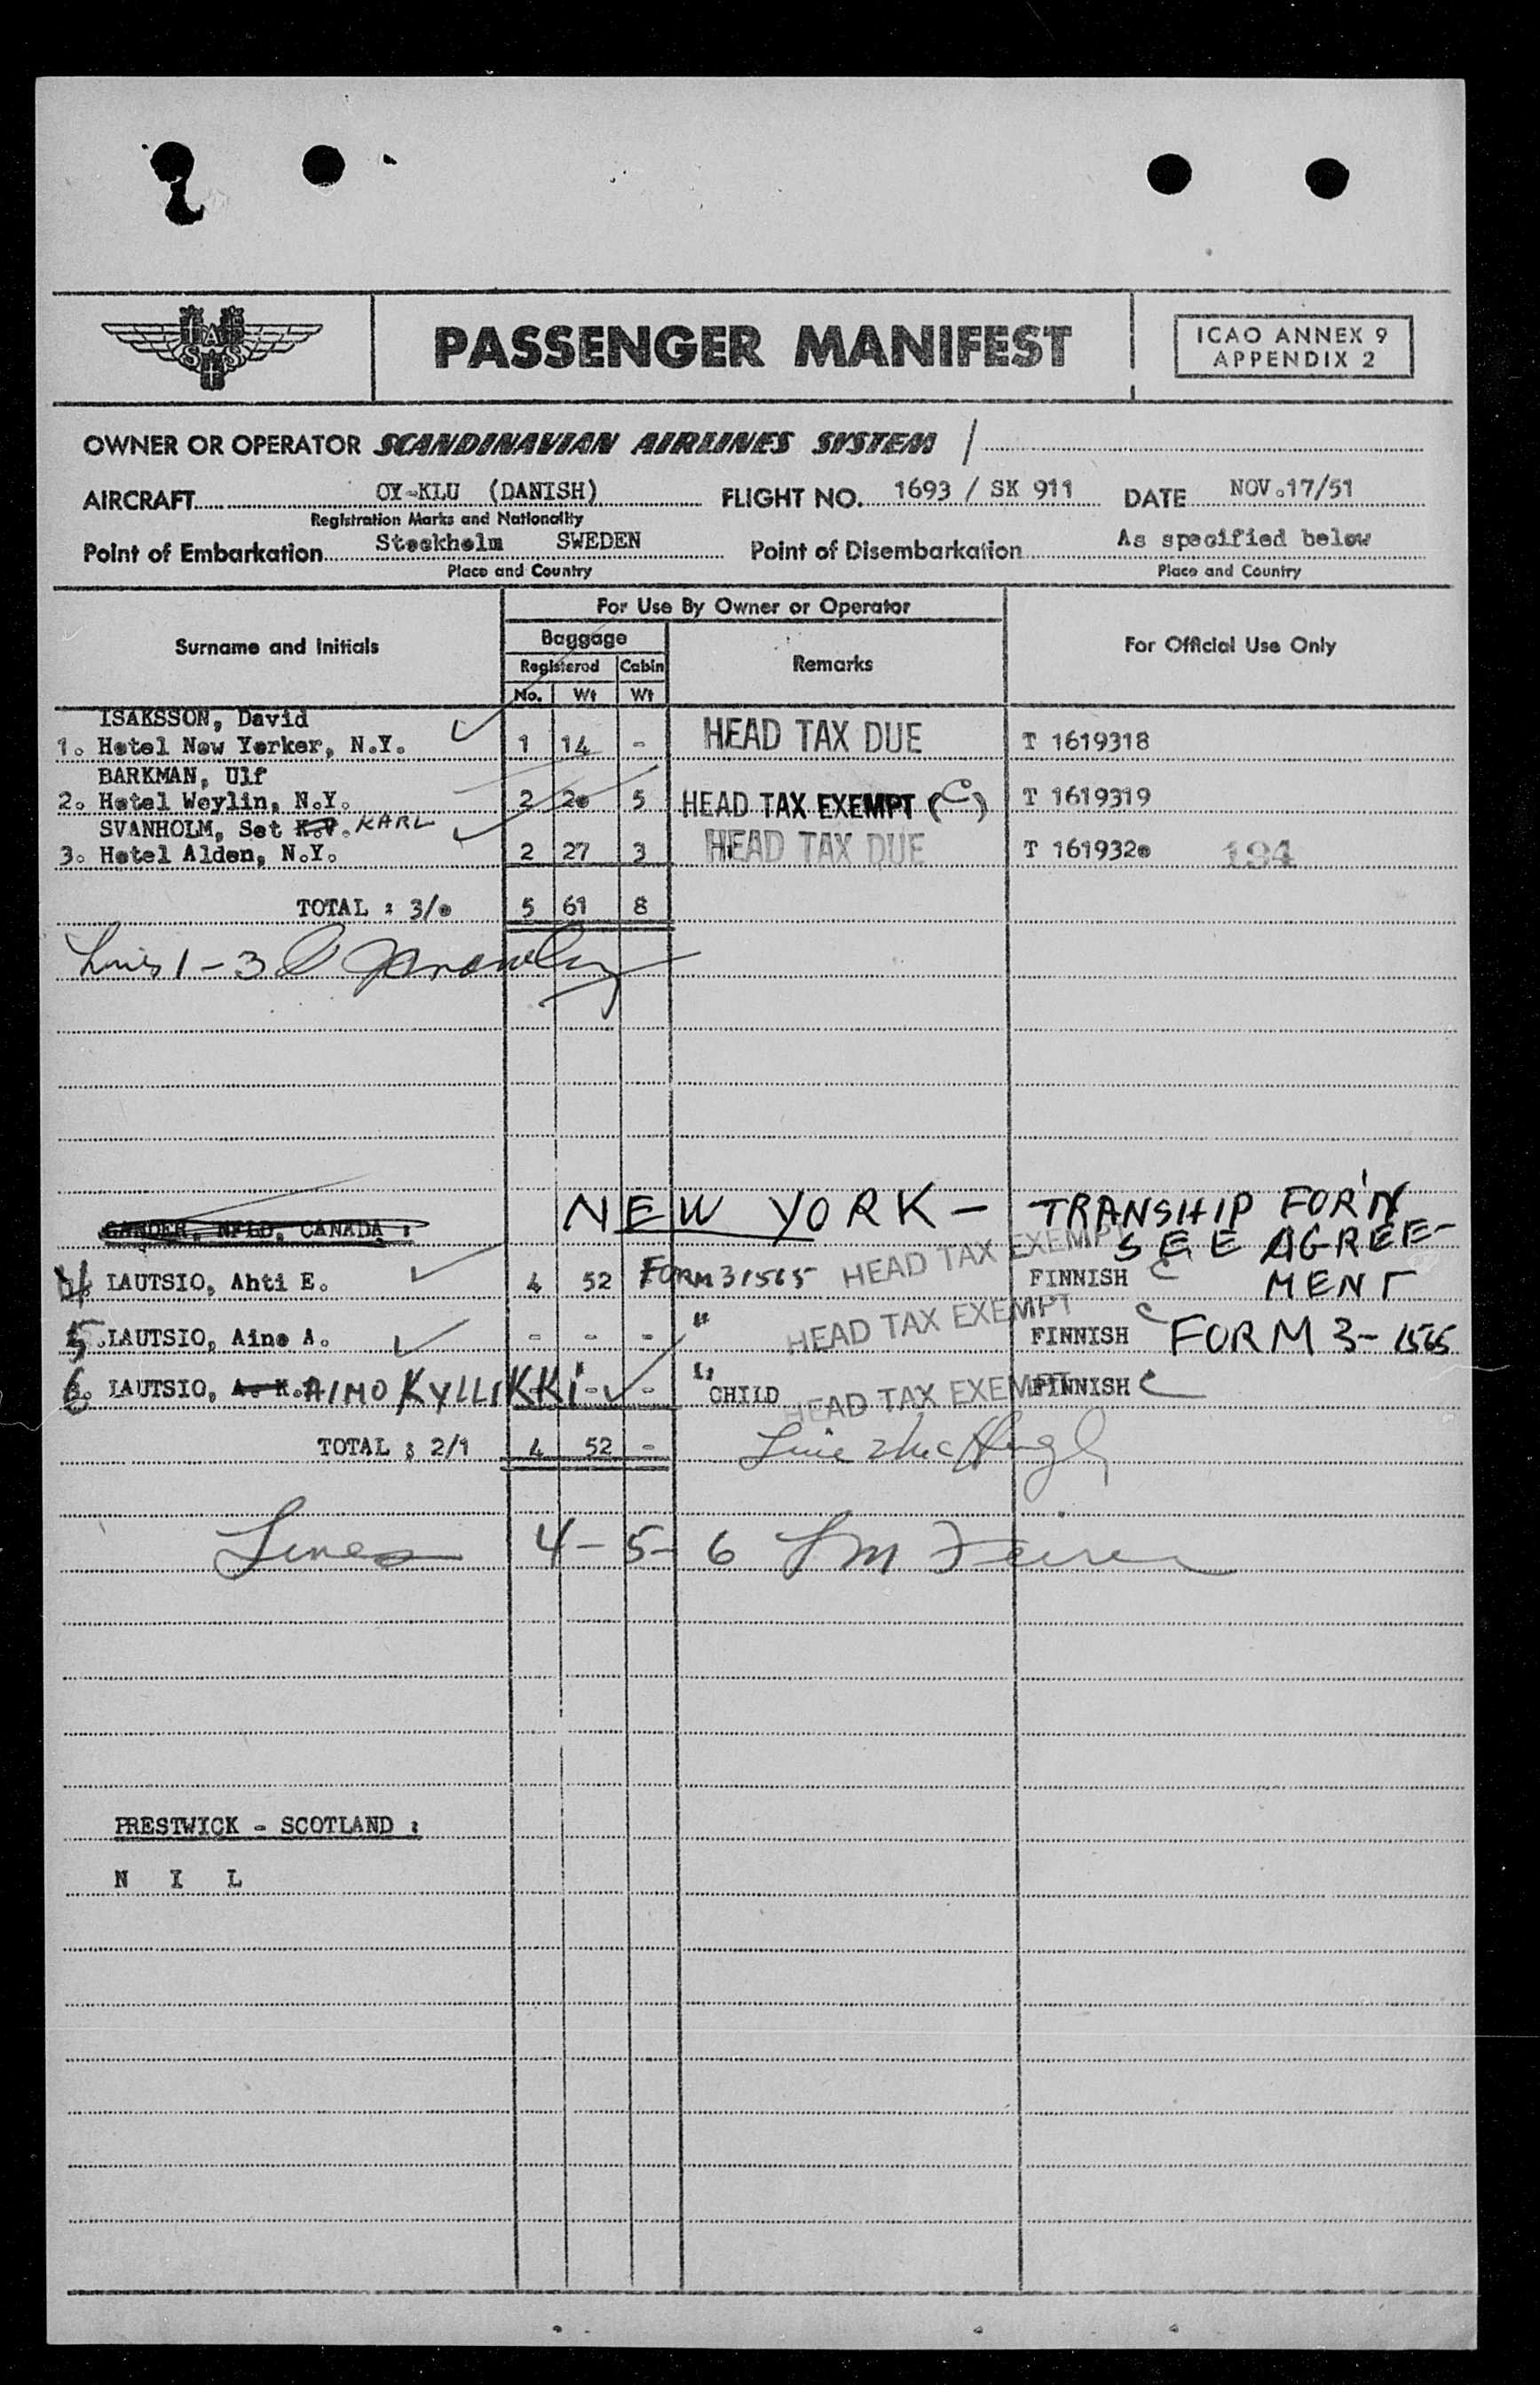 SAS
PASSENGER MANIFEST
ICAO ANNEX 9
APPENDIX 2
OWNER OR OPERATOR SCANDINAVIAN AIRLINES SYSTEM /
AIRCRAFT OY-KLU (DANISH) FLIGHT NO. 1693 / SK 911 DATE NOV.17/51
Registration Marks and Nationality
Point of Embarkation Stockholm SWEDEN Point of Disembarkation As specified below
Place and Country Place and Country
For Use By Owner or Operator
Surname and Initials Baggage Remarks For Official Use Only
Registered Cabin
No. Wt Wt
ISAKSSON, David
1. Hotel New Yorker, N.Y. 1 14 - HEAD TAX DUE T 1619318
BARKMAN, Ulf
2. Hotel Weylin, N.Y. 2 20 5 HEAD TAX EXEMPT (C) T 1619319
SVANHOLM, Set K.V. KARL
3. Hotel Alden, N.Y. 2 27 3 HEAD TAX DUE T 1619320 194
TOTAL : 3/0 5 61 8
Lines 1-3
NEW YORK - TRANSHIP FOR'N
GANDER, NFLD, CANADA : SEE AGREE-
4. LAUTSIO, Ahti E. 4 52 FORM 31565 HEAD TAX EXEMPT FINNISH C MENT
5. LAUTSIO, Aino A. - - - " HEAD TAX EXEMPT FINNISH C FORM 3-1565
6. LAUTSIO, A. K. AIMO KYLLIKKI - - " CHILD HEAD TAX EXEMPT FINNISH C
TOTAL : 2/1 4 52 -
Lines 4-5-6
PRESTWICK - SCOTLAND :
N I L